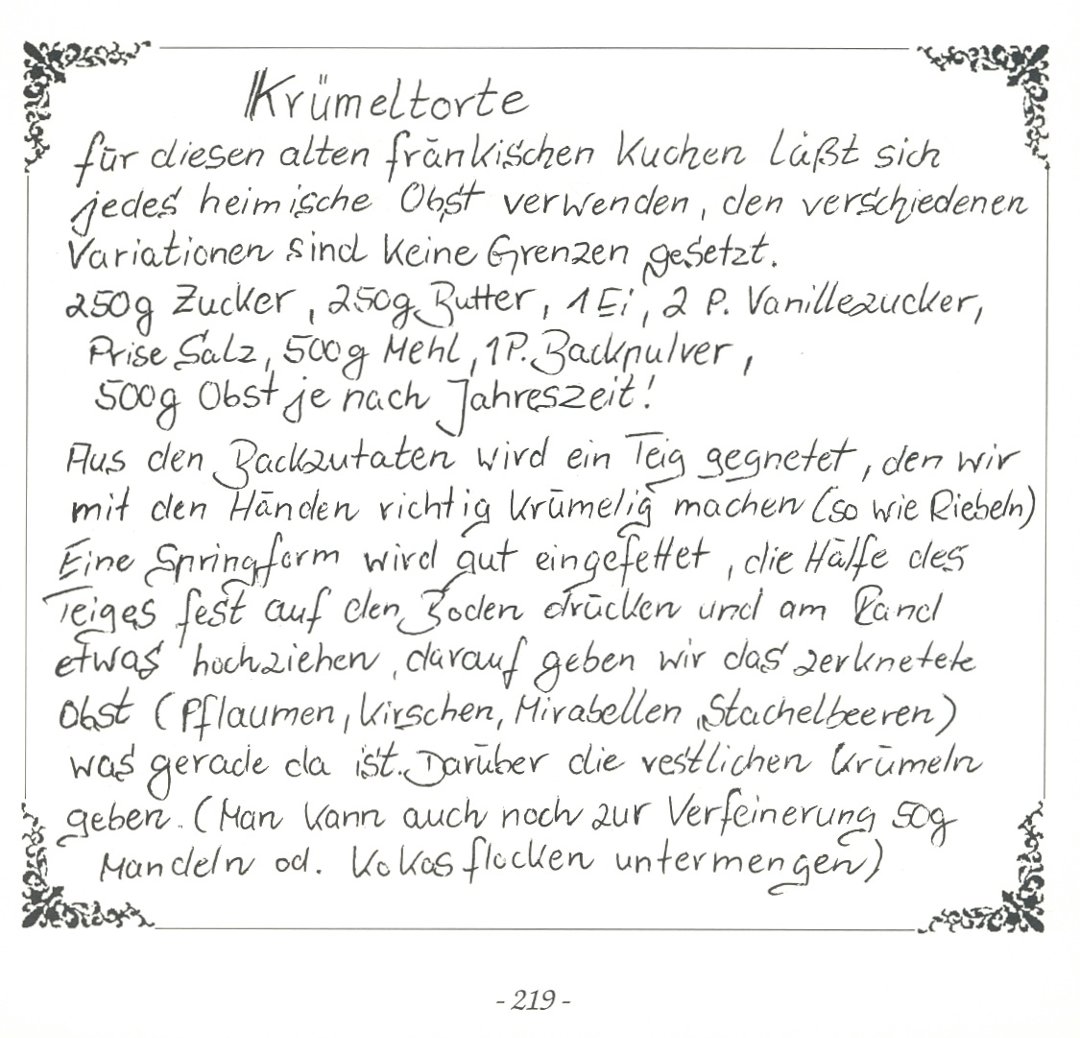 Krümeltorte
für diesen alten fränkischen Kuchen läßt sich
jedes heimische Obst verwenden, den verschiedenen
Variationen sind keine Grenzen gesetzt.
250g Zucker, 250g Butter, 1 Ei, 2 P. Vanillezucker,
Prise Salz, 500g Mehl, 1P. Backpulver,
500g Obst je nach Jahreszeit!
Aus den Backzutaten wird ein Teig gegnetet, den wir
mit den Händen richtig krümelig machen (so wie Riebeln)
Eine Springform wird gut eingefettet, die Hälfe des
Teiges fest auf den Boden drücken und am Rand
etwas hochziehen, darauf geben wir das zerknetete
Obst (Pflaumen, Kirschen, Mirabellen, Stachelbeeren)
was gerade da ist. Darüber die restlichen Krümeln
geben. (Man kann auch noch zur Verfeinerung 50g
Mandeln od. Kokosflocken untermengen)
- 219 -